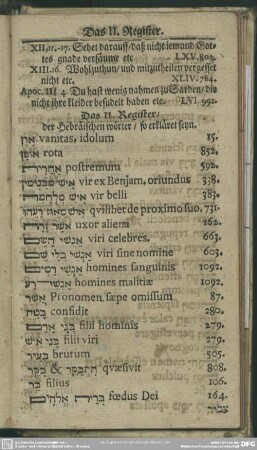 Das II. Register.
XII,15.-17. Sehet darauff/daß nicht iemand Got-
tes gnade versäume etc LXV.802.
XIII.16. Wohlzuthun/und mitzutheilen vergesset
nicht etc. XLIV.784.
Apoc. III 4 Du hast wenig nahmen zu Sarden/die
nicht ihre kleider besudelt haben etc. LVI. 992.
Das II. Register/
der Hebräischen wörter/ so erkläret seyn.
און vanitas, idolum 15.
אופן rota 852.
אחרית postremum 592.
vir ex Benjam, oriundus 338.
איש מלחמה vir belli 383.
qvilibet de proximo suo. 731.
uxor aliena 162.
אנשי השם viri celebres, 663.
אנשי בלי שם viri sine nomine 603.
אנשי דמים homines sangvinis 1092.
אנשי רע homines malitiæ 1092.
אשר Pronomen, sæpe omissum 87.
בטח confidit 280.
בני אדם filii hominis 279.
בני איש filii viri 279.
בעיר brutum 505.
בקר & התבקר qvæsivit 808.
בר filius 106.
ברית אלהים fœdus Dei 164.